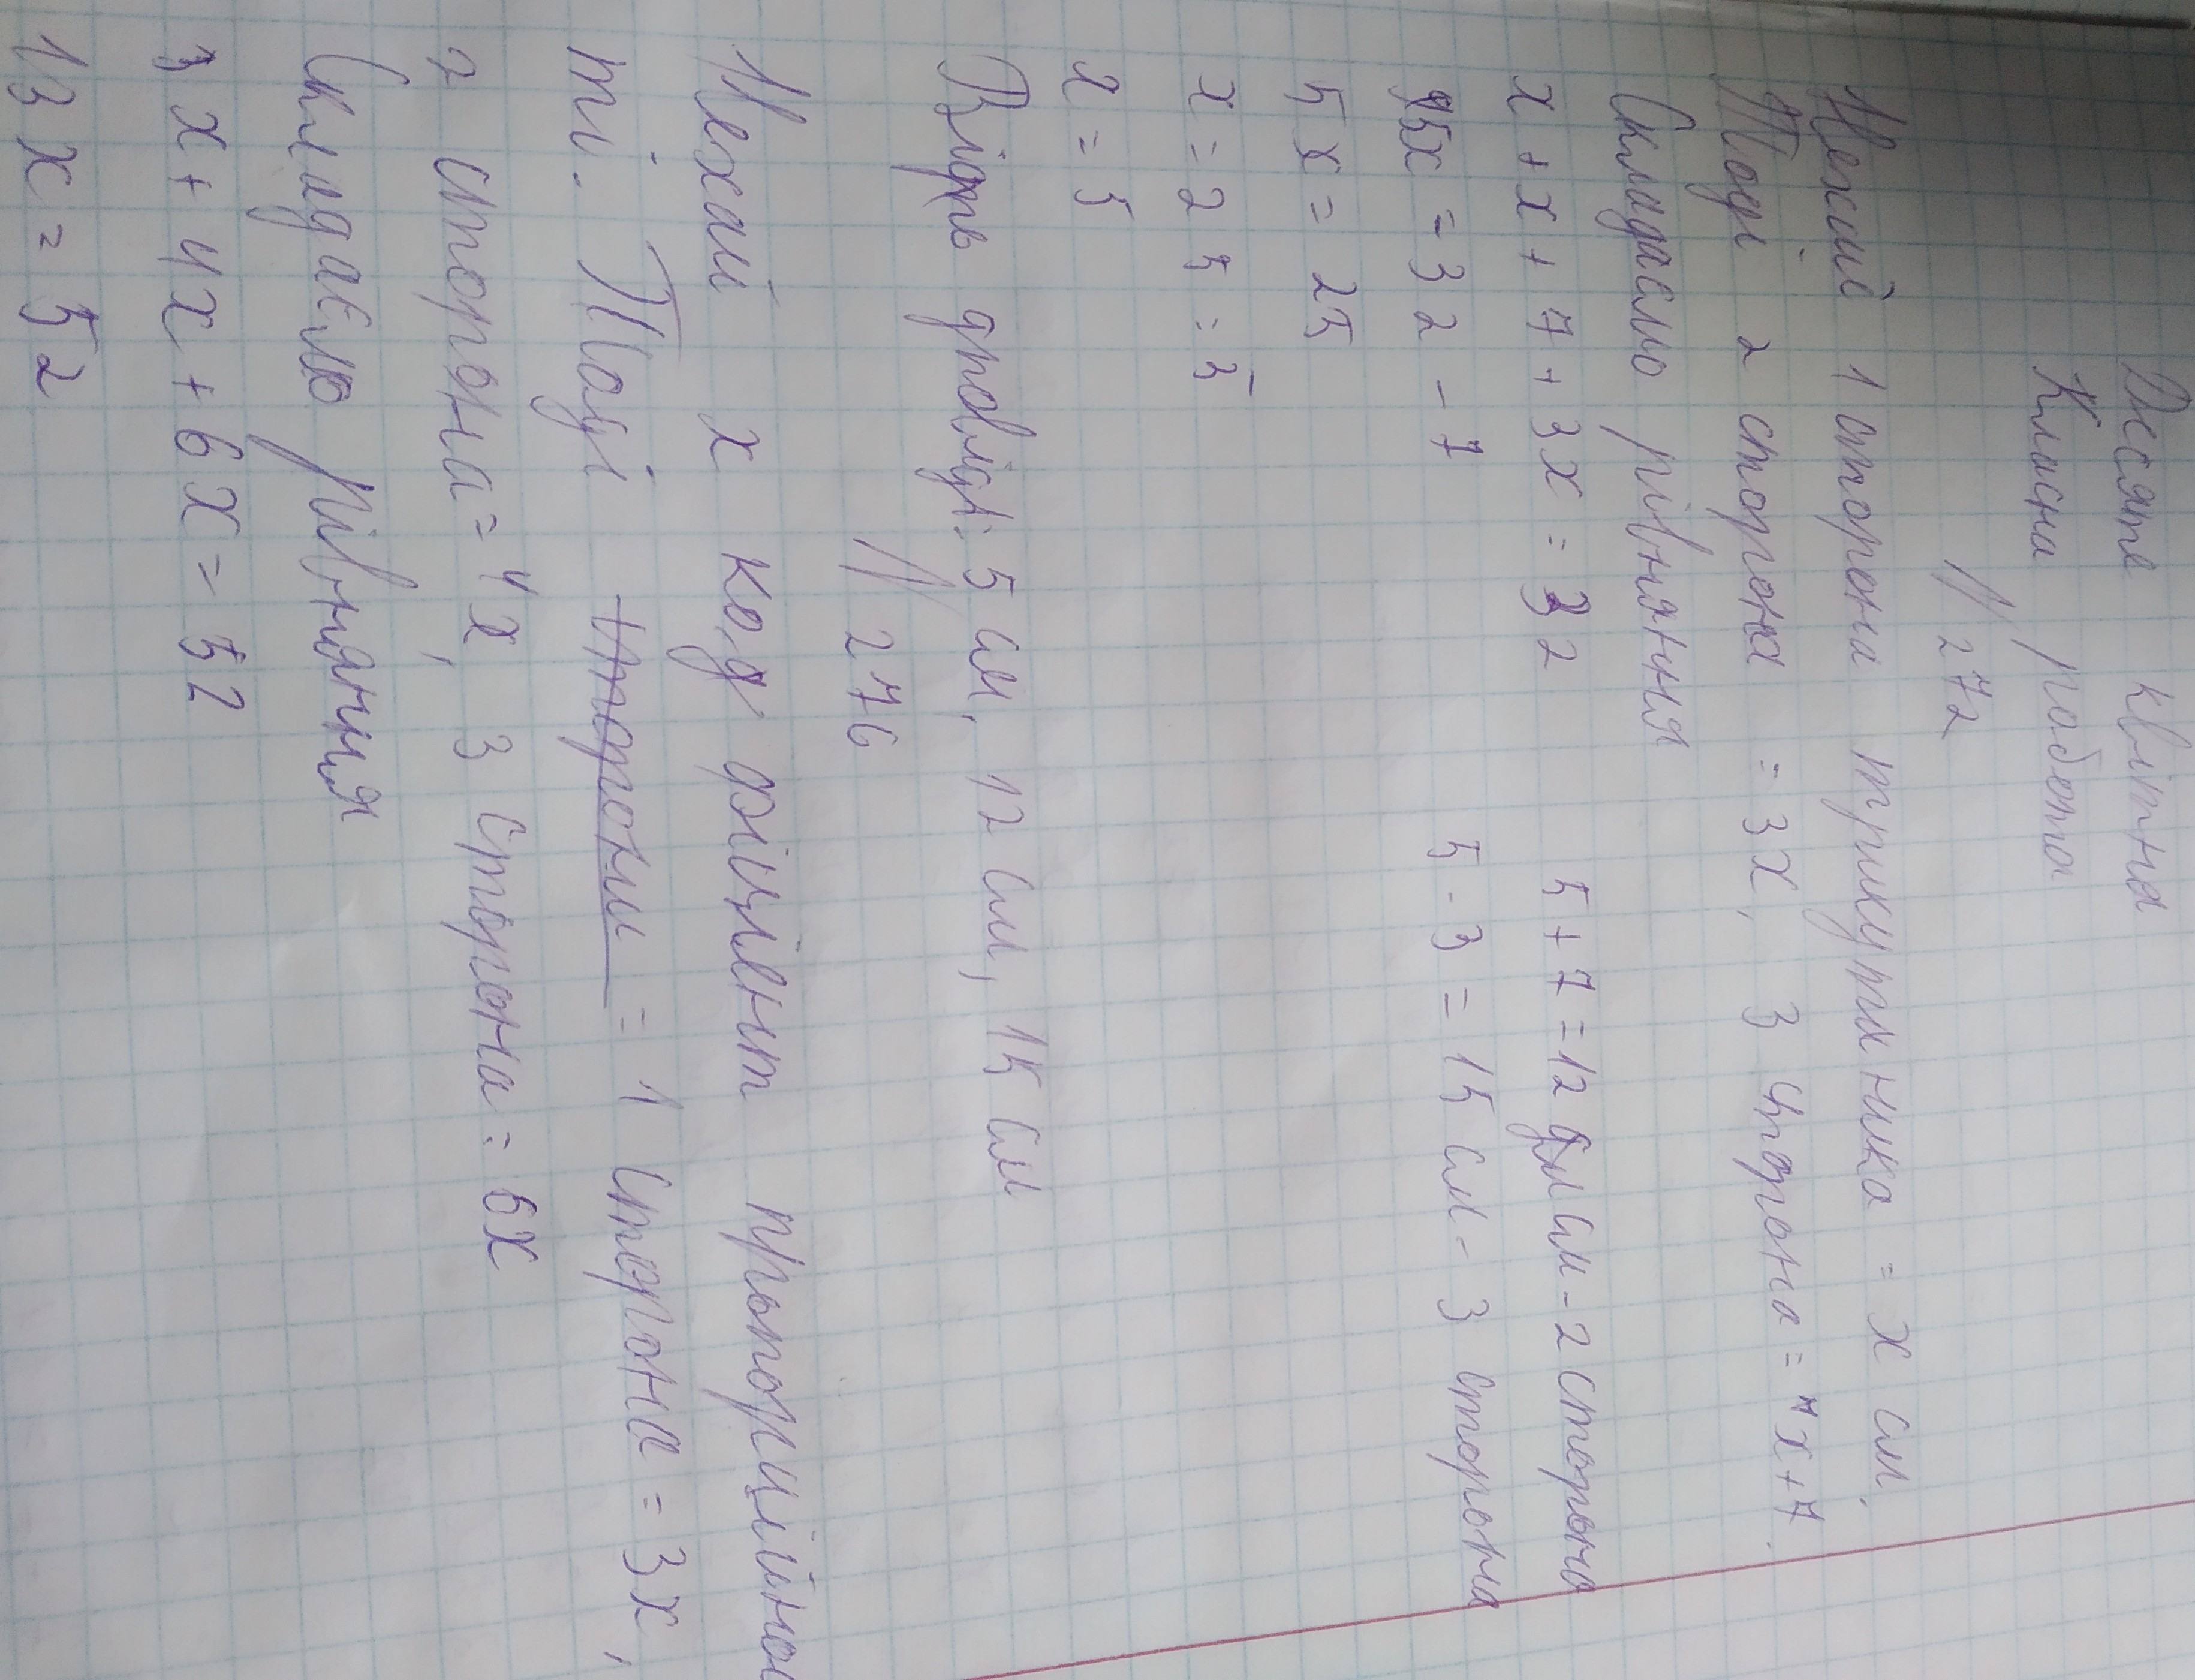 Десяте квітня
Класна робота
№ 272
Нехай 1 сторона трикутника = x см.
Тоді 2 сторона = 3x, 3 сторона = x+7.
Складаємо рівняння
x + x + 7 + 3x = 32
5 + 7 = 12 см - 2 сторона
5x = 32 - 7
5 · 3 = 15 см - 3 сторона
5x = 25
x = 25 : 5
x = 5
Відповідь: 5 см, 12 см, 15 см
№ 276
Нехай x коефіцієнт пропорційнос
ті. Тоді сторони = 1 сторона = 3x,
2 сторона = 4x, 3 сторона = 6x
Складаємо рівняння
3x + 4x + 6x = 52
13x = 52